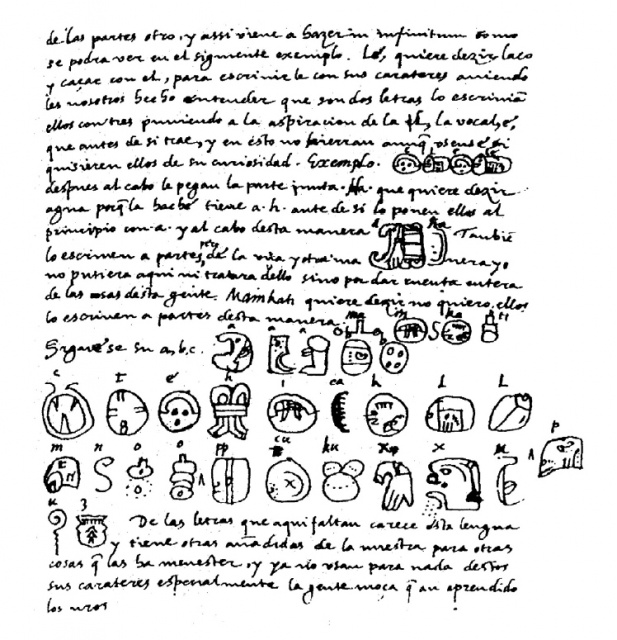 de las partes otro, y assi viene a hazer in infinitum como
se podra ver en el siguiente exemplo. Lé, quiere dezir laço
y caçar con el, para escrivirle con sus carateres aviendo
les nosotros hecho entender que son dos letras lo escrivian
ellos con tres puniendo a la aspiracion de la l, la vocal, é,
que antes de si trae, y en esto no hierran aunq̃ usense, si
quisieren ellos de su curiosidad. Exemplo.
despues al cabo le pegan la parte junta. Ha. que quiere dezir
agua porq̃ la hache tiene a. h. ante de si lo ponen ellos al
principio con a. y al cabo desta manera
a ha
Tambiē
lo escriven a partes, de la una y otra ma nera yo
no pusiera aqui ni tratara dello sino por dar cuenta entera
de las cosas desta gente. Mamkati quiere dezir no quiero, ellos
lo escriven a partes desta manera.
ma i m ka ti
Siguese su a, b, c.
a a a b b
c t é h i ca k l l
m n o o pp cu ku x x u p
u z
De las letras que aqui faltan carece esta lengua
y tiene otras añadidas de la nuestra para otras
cosas q̃ las ha menester, y ya no usan para nada destos
sus carateres especialmente la gente moça q̃ an aprendido
los nros